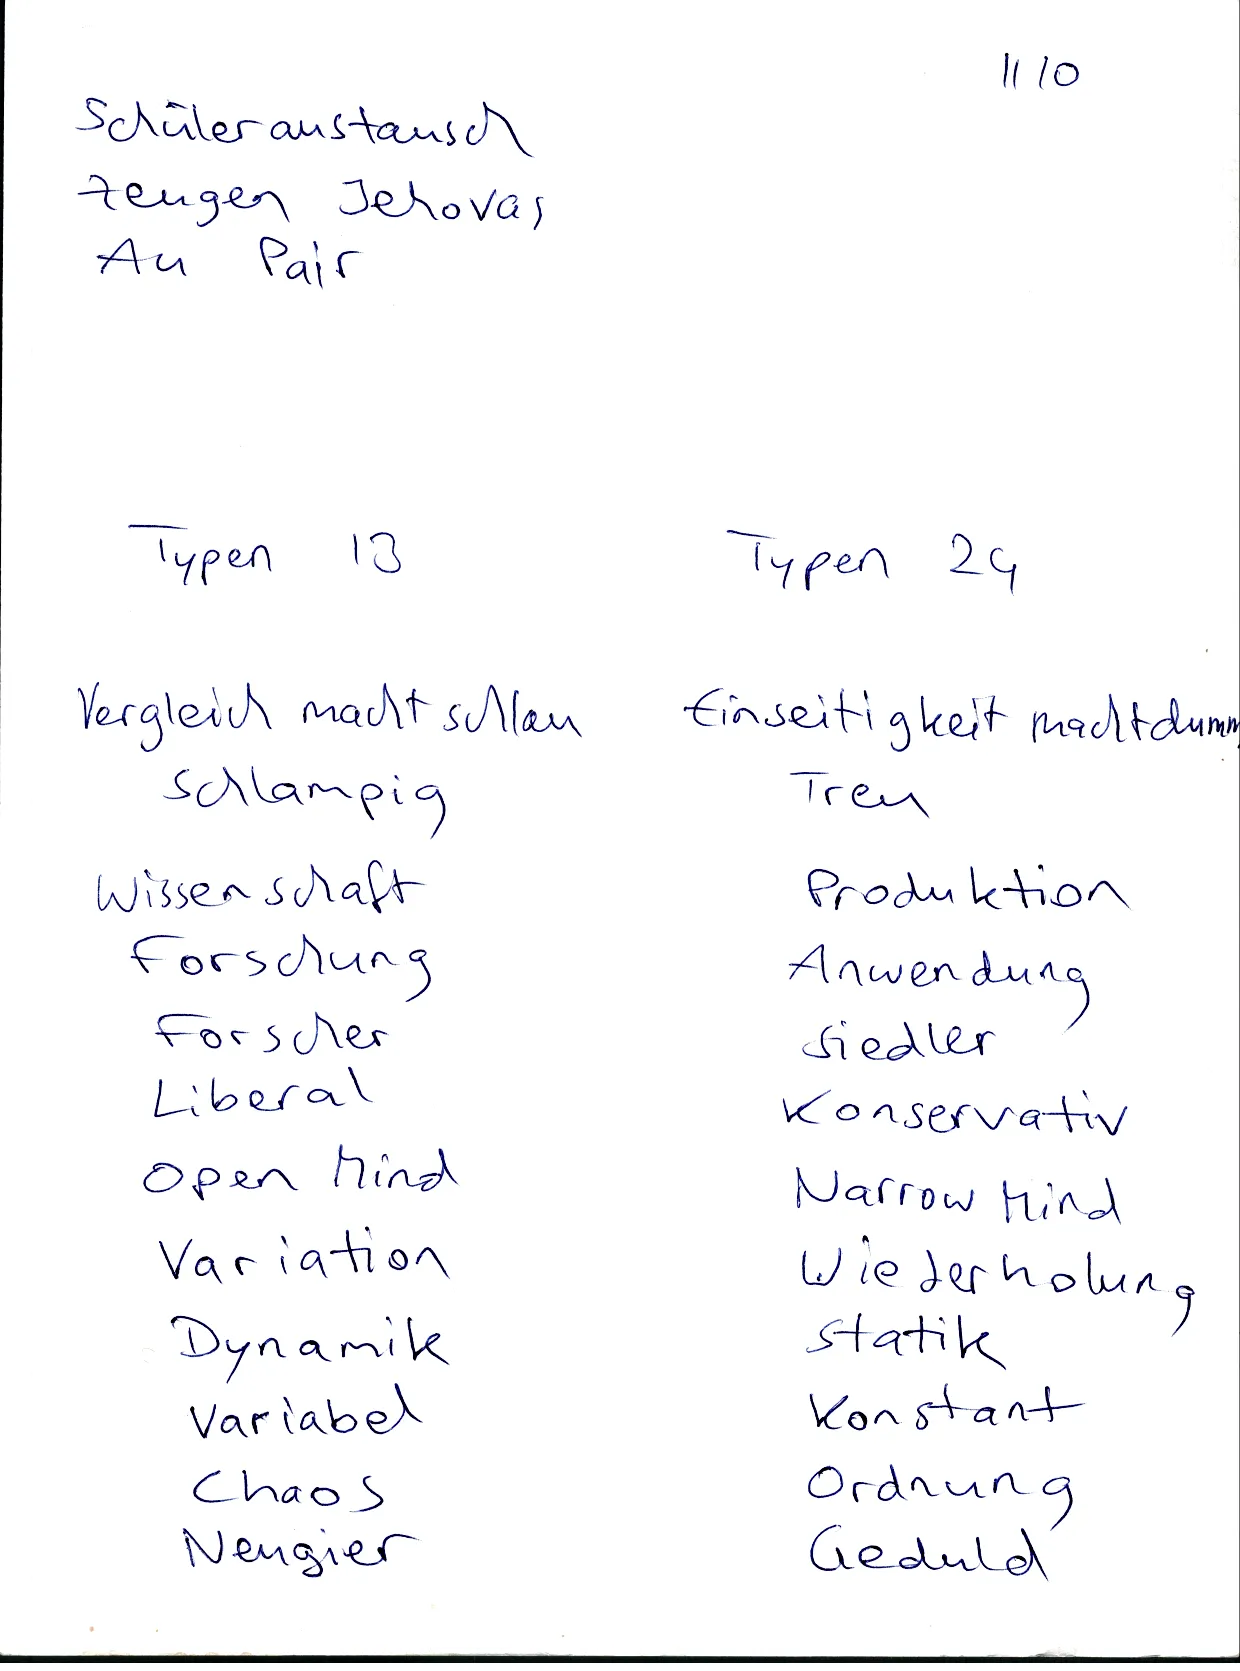 11/10
Schüleraustausch
Zeugen Jehovas
Au Pair
Typen 13
Typen 24
Vergleich macht schlau
Einseitigkeit macht dumm
Schlampig
Treu
Wissenschaft
Produktion
Forschung
Anwendung
Forscher
Siedler
Liberal
Konservativ
Open Mind
Narrow Mind
Variation
Wiederholung
Dynamik
Statik
Variabel
Konstant
Chaos
Ordnung
Neugier
Geduld